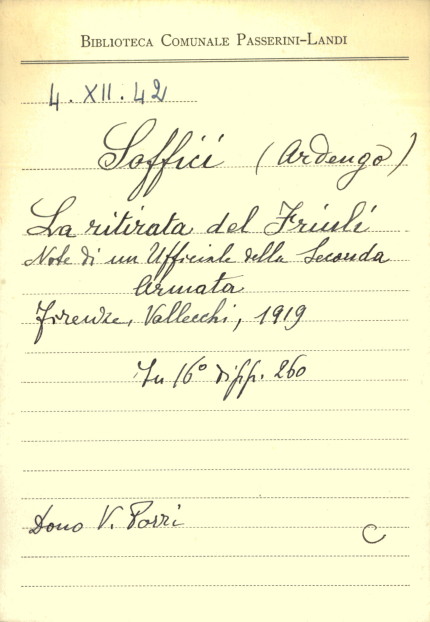 BIBLIOTECA COMUNALE PASSERINI-LANDI
4. XII. 42
Soffici (Ardengo)
La ritirata del Friuli
Note di un Ufficiale della Seconda
Armata
Firenze, Vallecchi, 1919
In 16° di pp. 260
Dono V. Porri
C